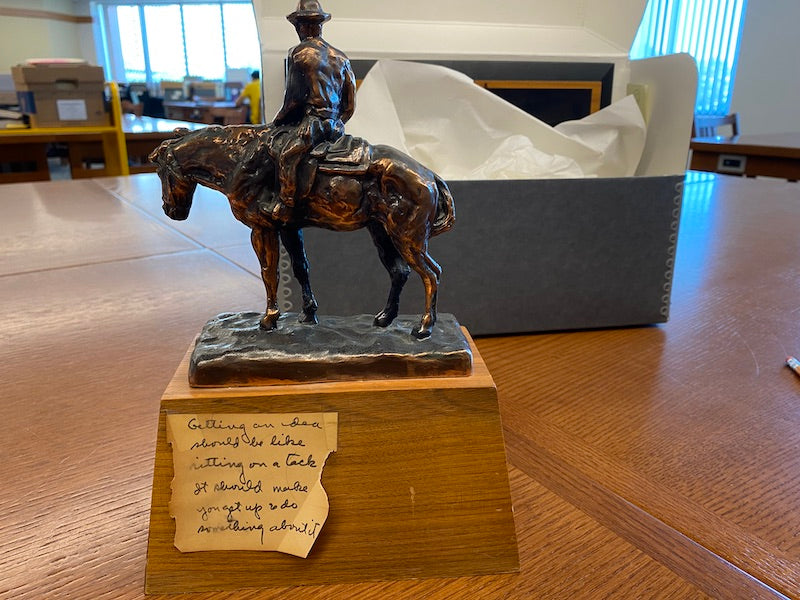 Getting an idea
should be like
sitting on a tack
It should make
you get up & do
something about it